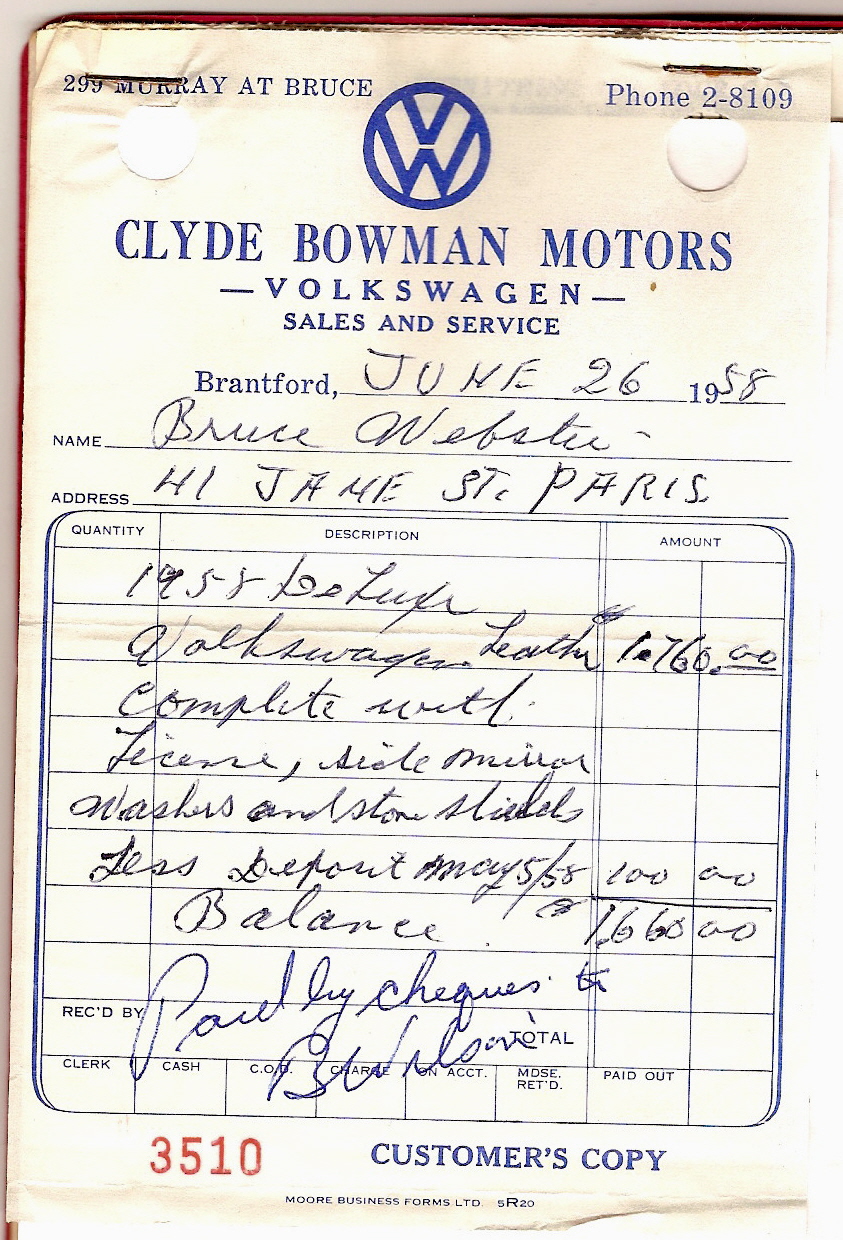 299 MURRAY AT BRUCE Phone 2-8109
VW
CLYDE BOWMAN MOTORS
—VOLKSWAGEN—
SALES AND SERVICE
Brantford, JUNE 26 1958
NAME Bruce Webster
ADDRESS 41 JANE ST. PARIS
QUANTITY DESCRIPTION AMOUNT
1958 DeLuxe
Volkswagen Leather 1,760.00
Complete with
License, side mirror
Washers and stone shields
Less Deposit May 5/58 100 00
Balance 1,660 00
Paid by cheques to
REC'D BY
B Wilson TOTAL
CLERK CASH C.O.D. CHARGE ON ACCT. MDSE. RET'D. PAID OUT
3510 CUSTOMER'S COPY
MOORE BUSINESS FORMS LTD. 5R20